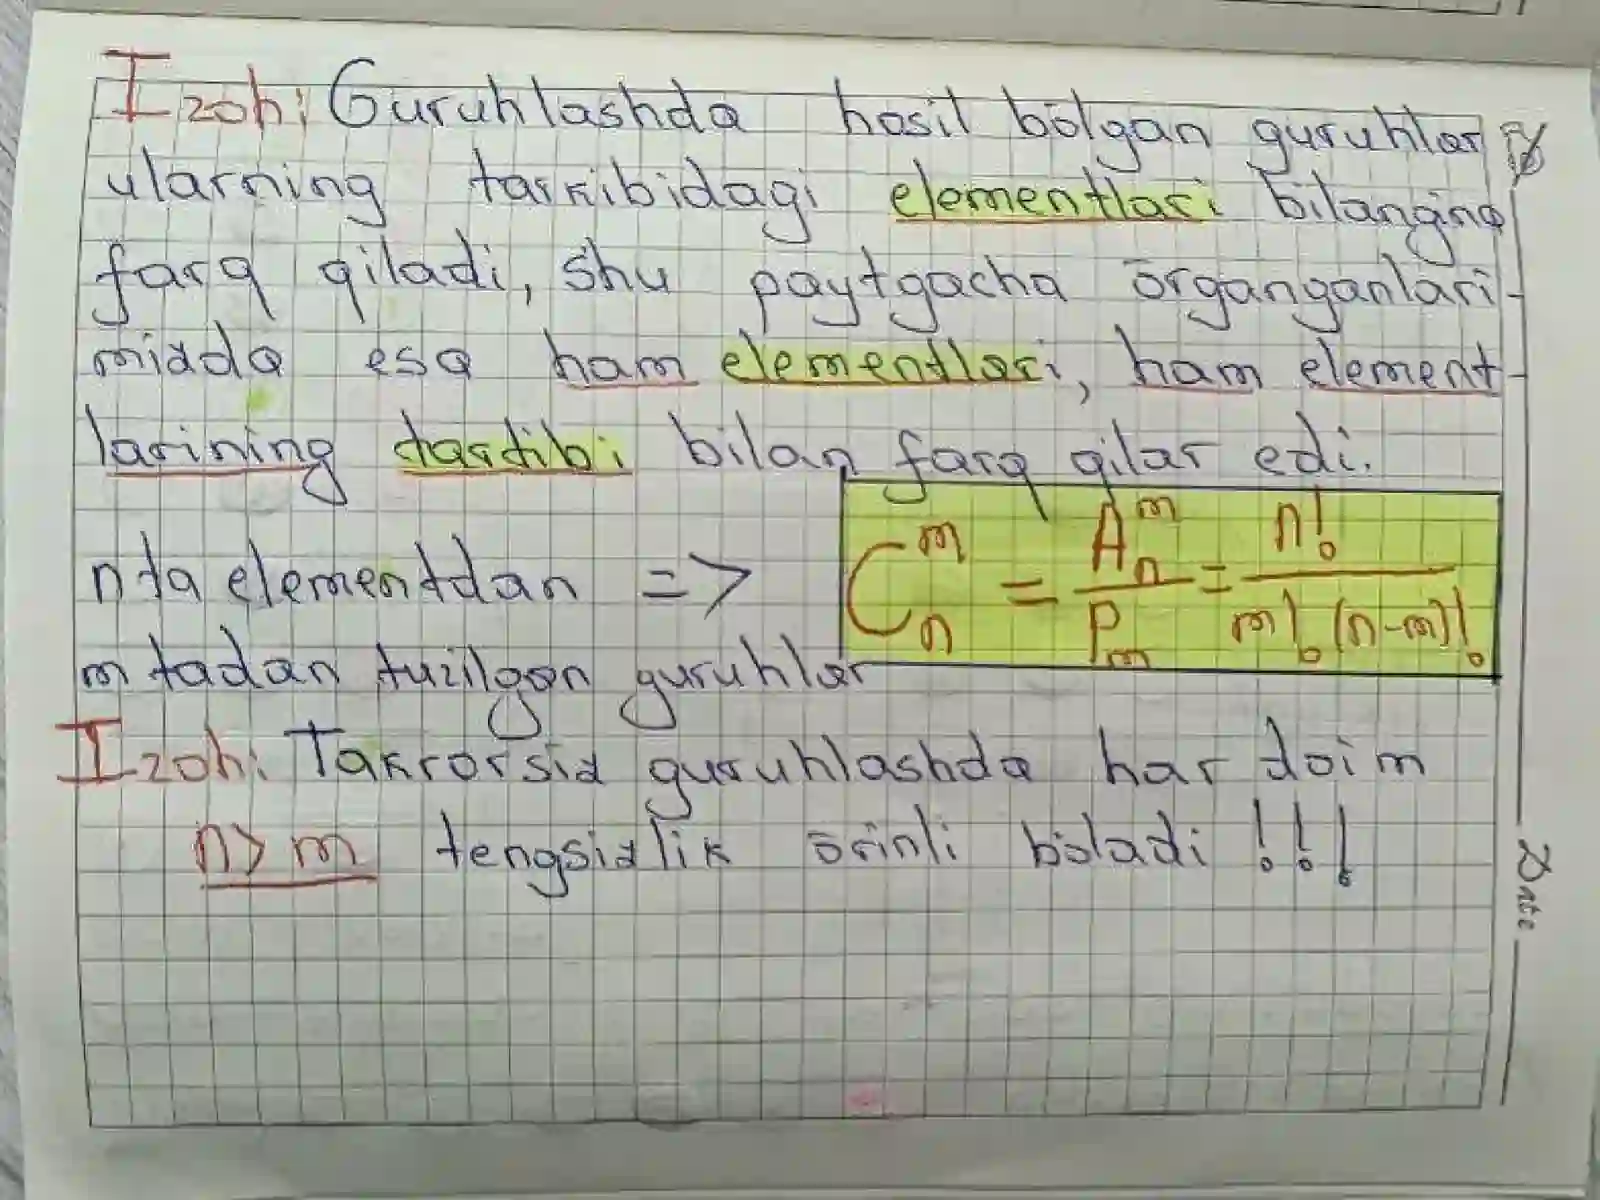 Izoh: Guruhlashda hosil bōlgan guruhlar
ularning tarkibidagi elementlari bilangina
farq qiladi, shu paytgacha ōrganganlari-
mizda esa ham elementlari, ham element
larining tartibi bilan farq qilar edi.
n ta elementdan => C_n^m = A_n^m / P_m = n! / m! (n-m)!
m tadan tuzilgan guruhlar
Izoh: Takrorsiz guruhlashda har doim
n > m tengsizlik ōrinli bōladi !!!
Date